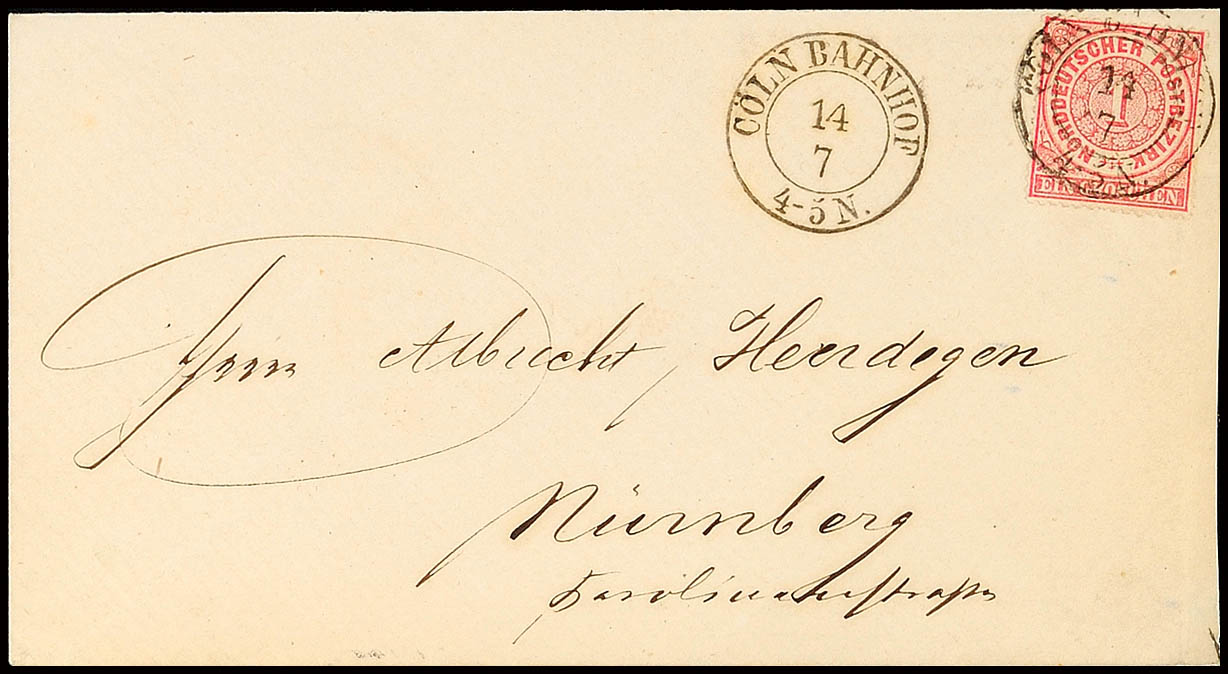 CÖLN BAHNHOF
14
7
4-5 N.
NORDDEUTSCHER POSTBEZIRK
1
EIN GROSCHEN
14
7
Herrn Albrecht Heerdegen
Nürnberg